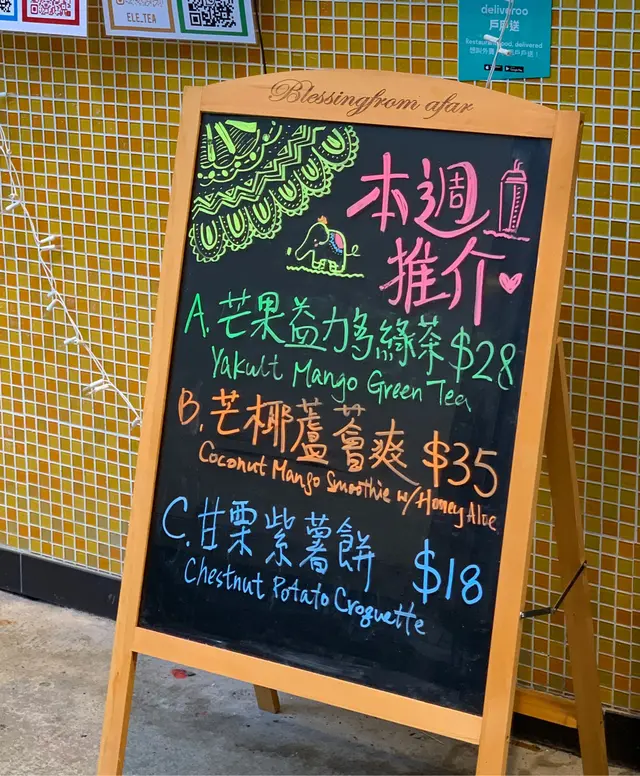 ELE_TEA
deliveroo
戶戶送
Blessingfrom afar
本週
推介
A. 芒果益力多綠茶 $28
Yakult Mango Green Tea
B. 芒椰蘆薈爽 $35
Coconut Mango Smoothie w/ Honey Aloe
C. 甘栗紫薯餅 $18
Chestnut Potato Croquette